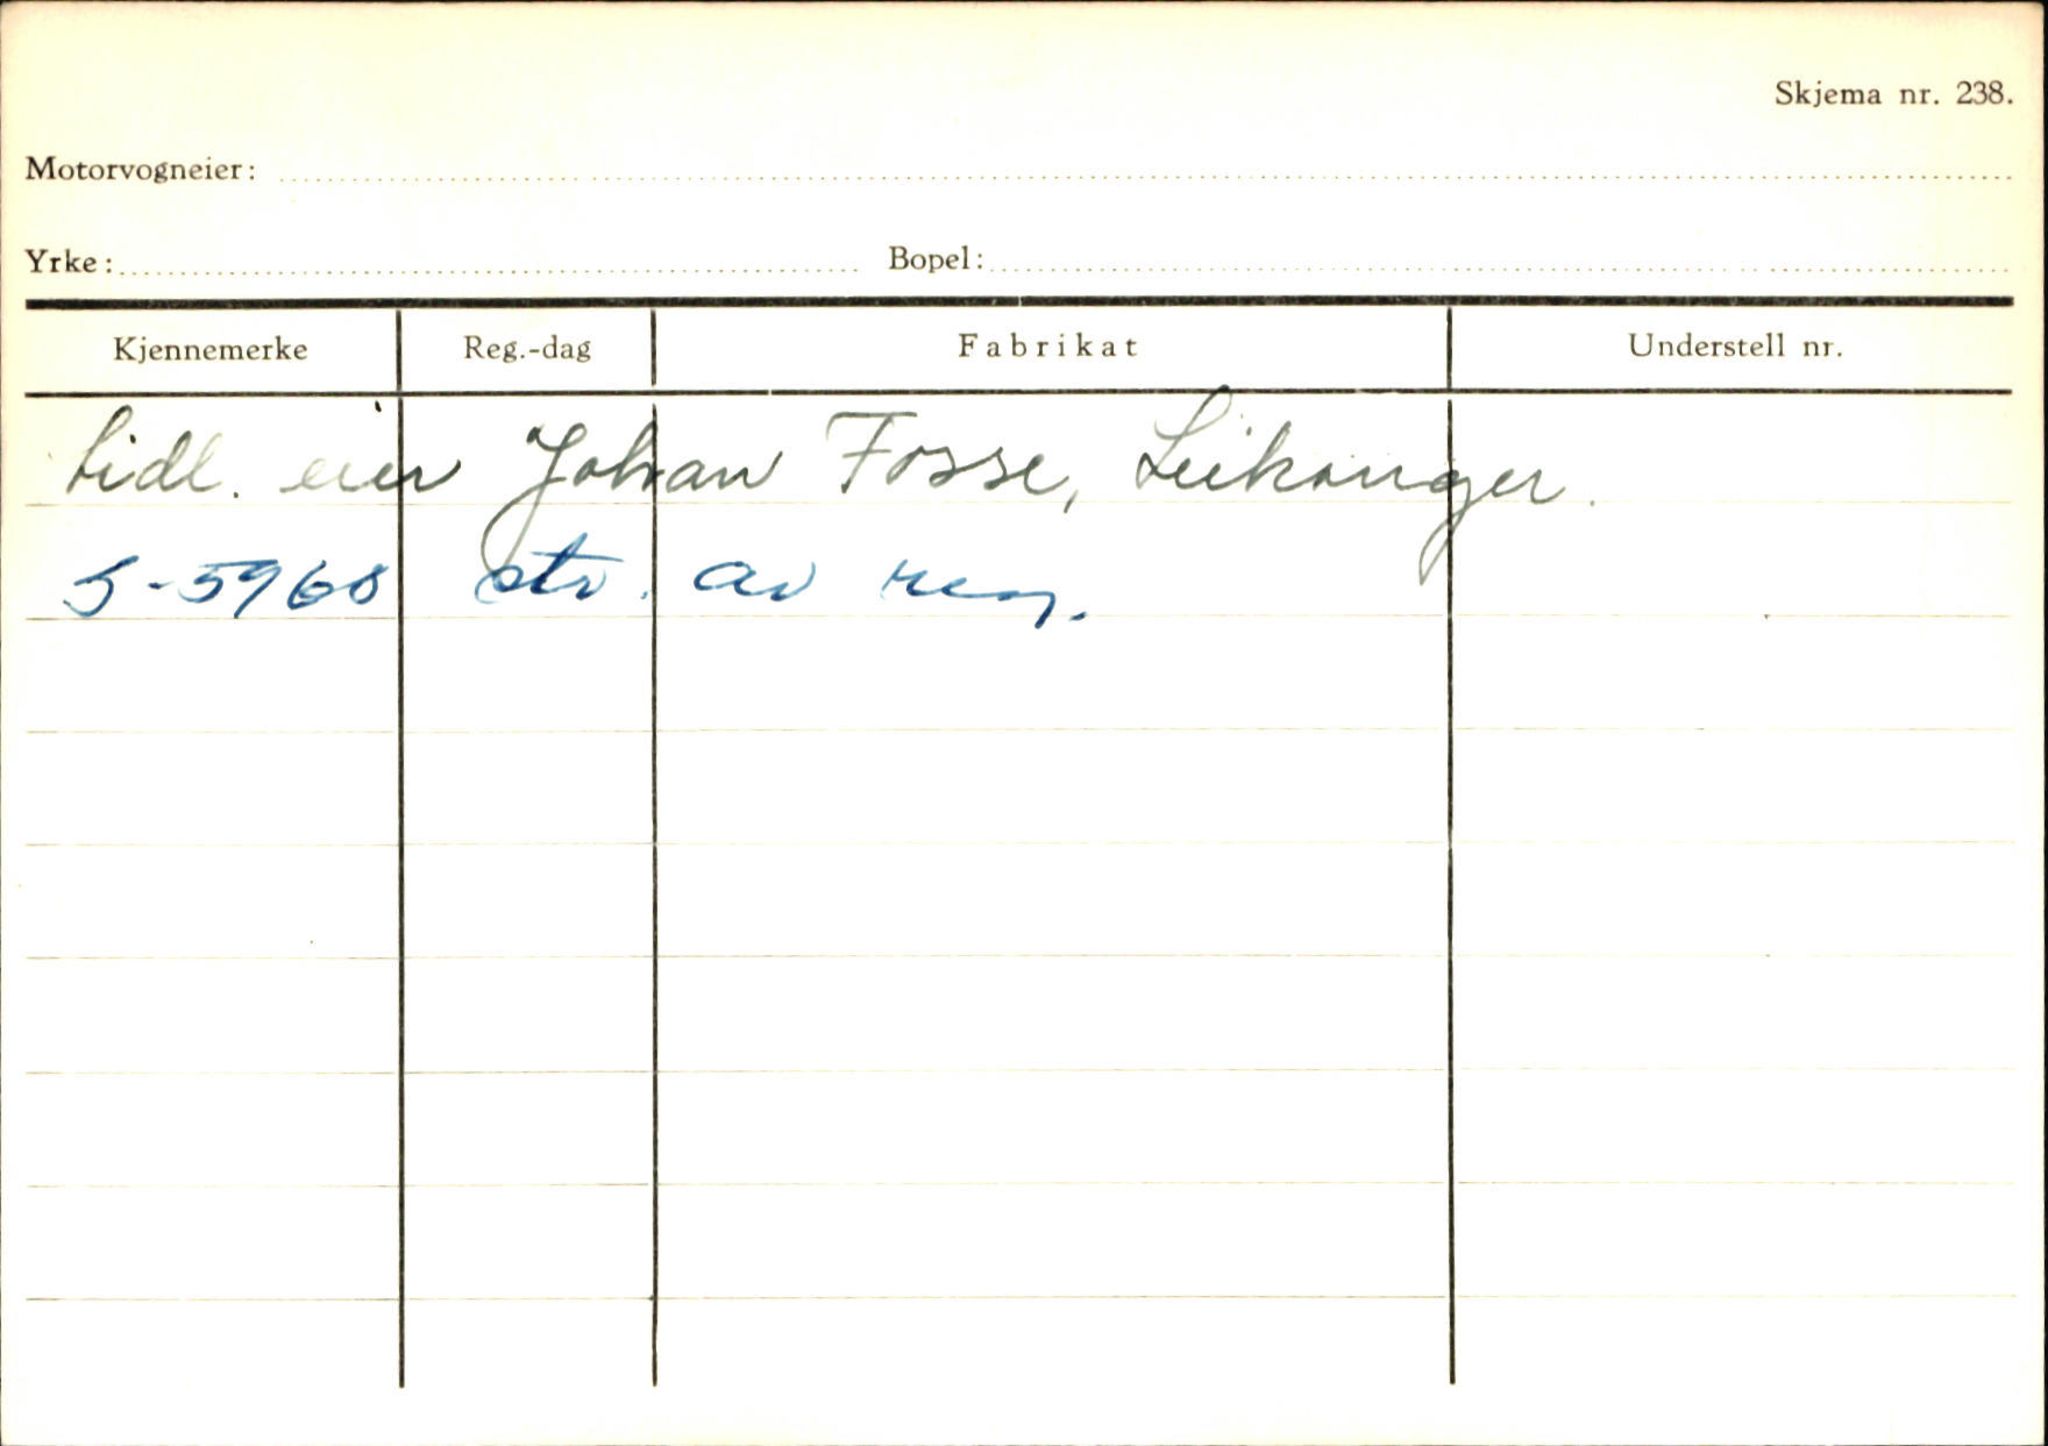 Skjema nr. 238.
Motorvogneier:
Yrke: Bopel:
Kjennemerke Reg.-dag Fabrikat Understell nr.
tidl. eier Johan Fosse, Leikanger.
S-5968 str. av reg.